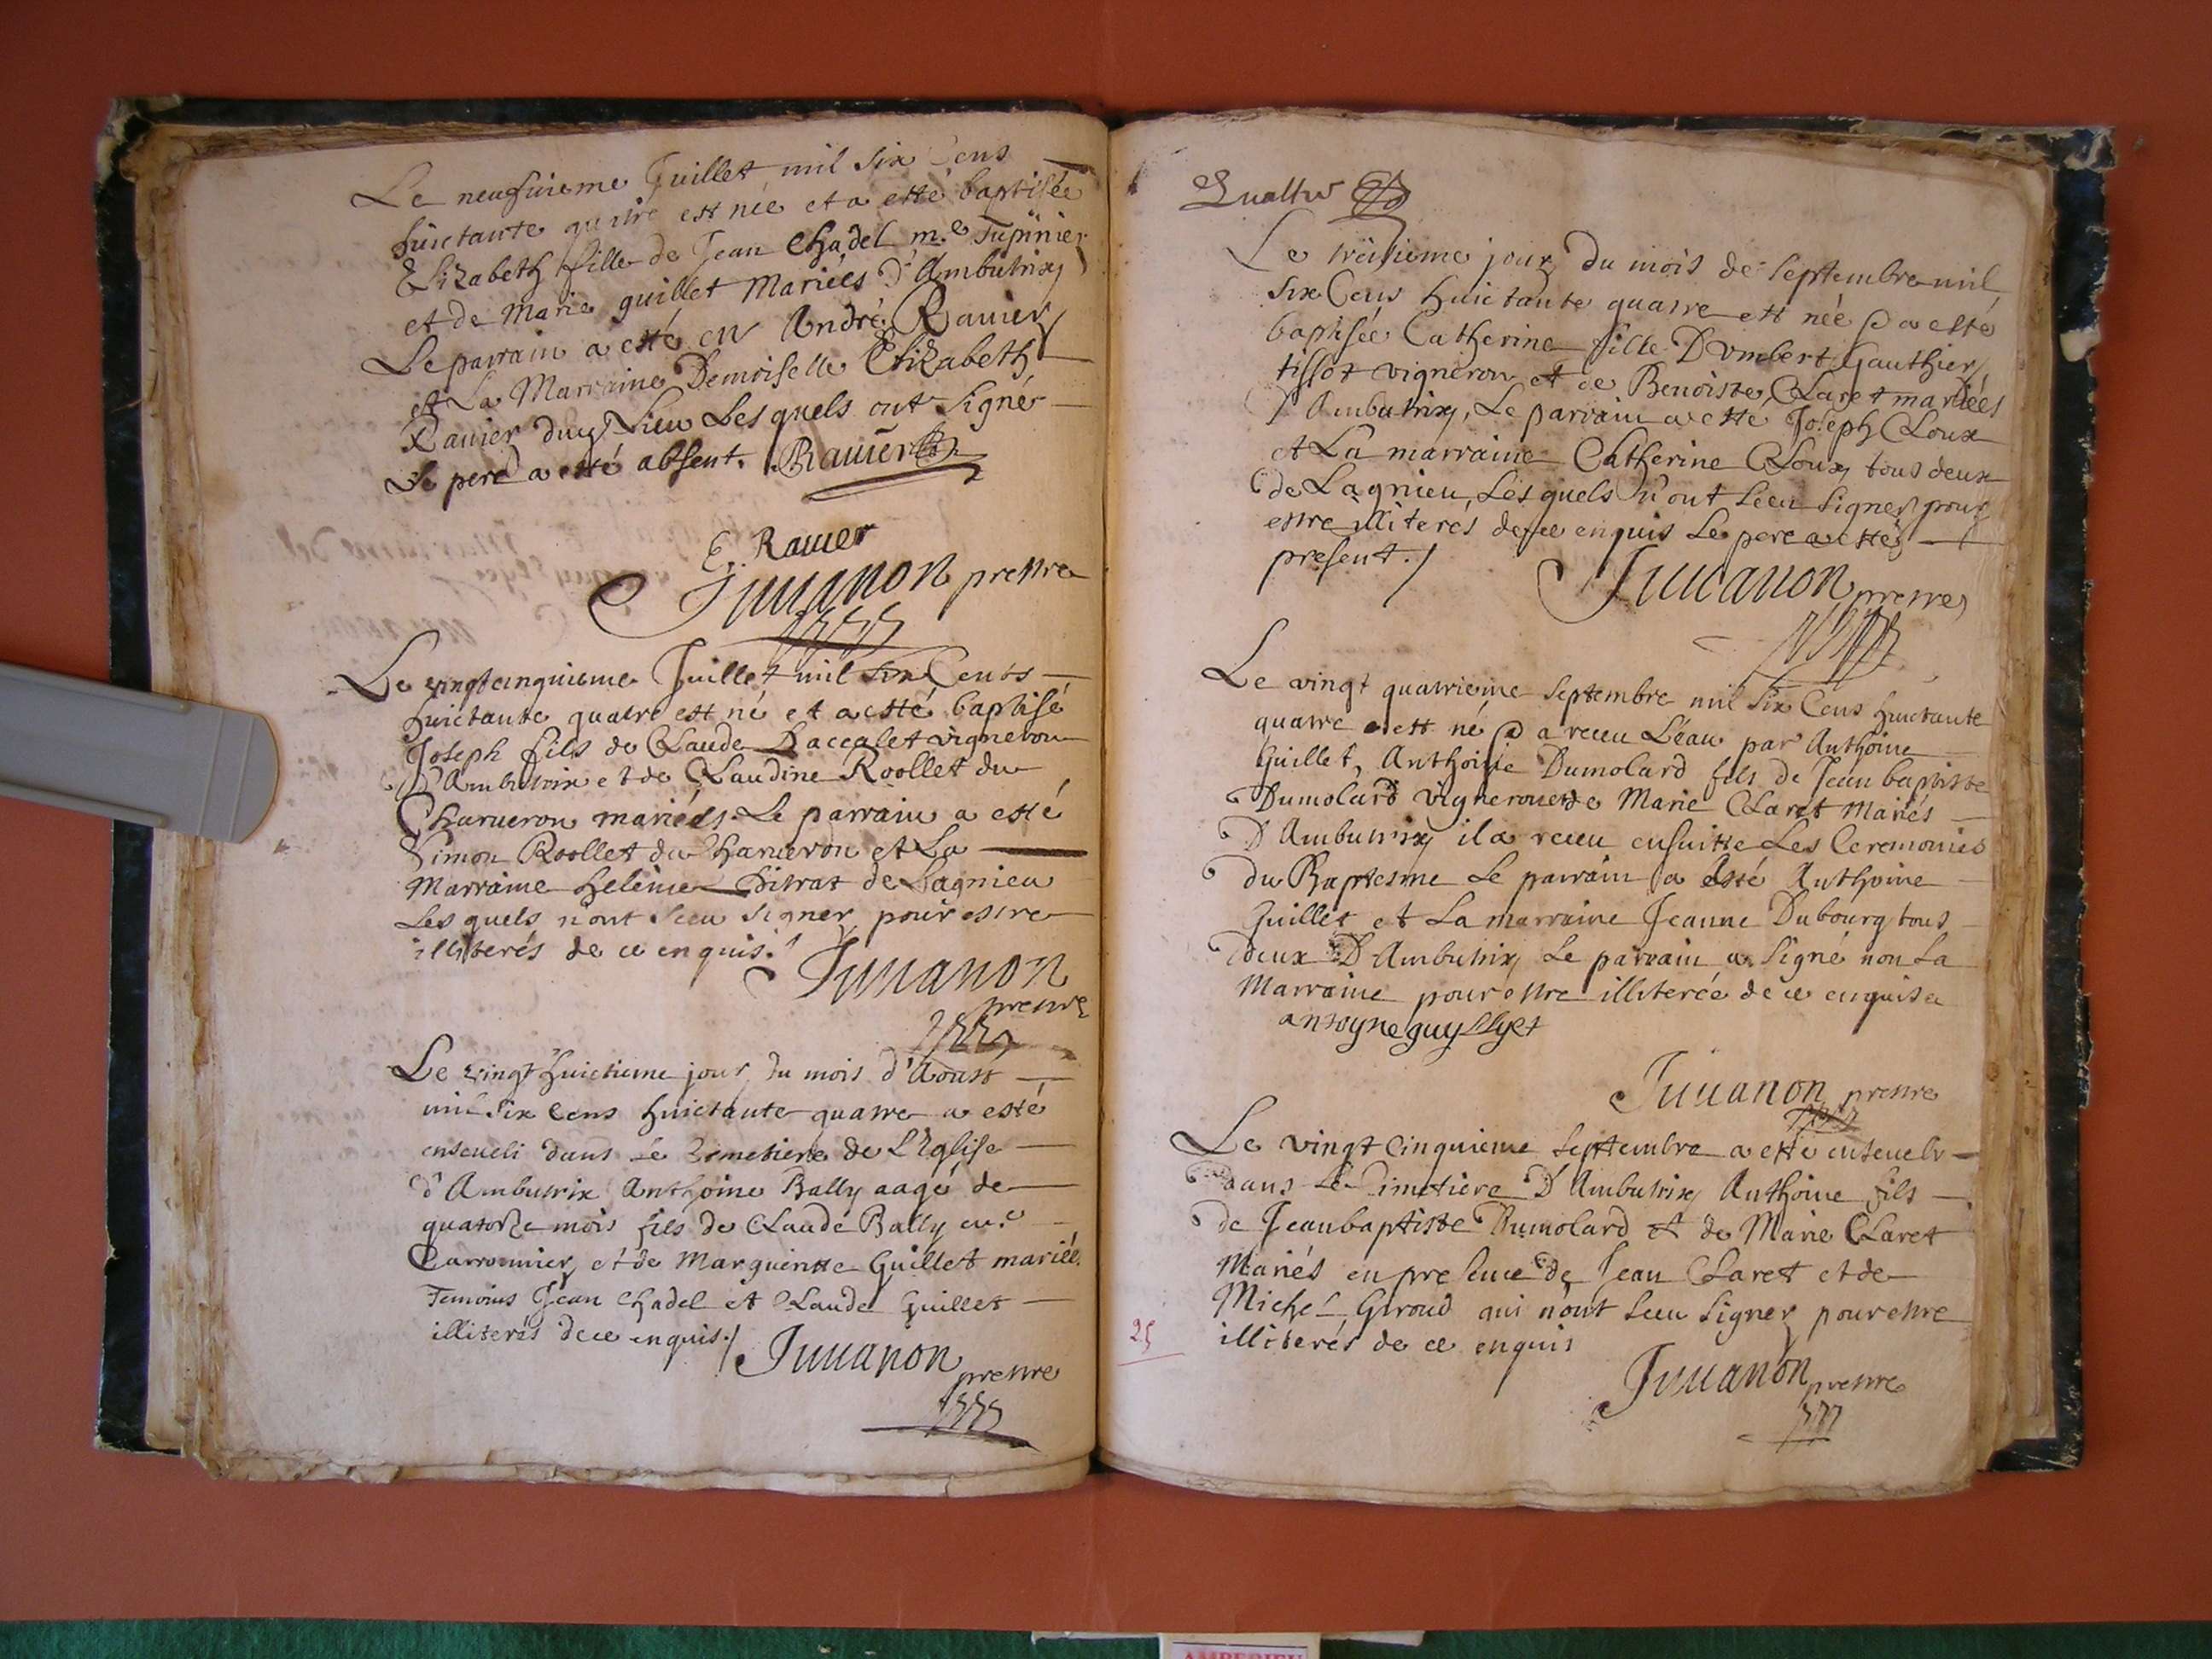 Le neufuieme Juillet mil six Cens
huictante quatre est née et a esté baptisée
Elizabeth fille de Jean Chadel m.e Tupinier
et de Marie guillet Mariées d'Ambutrix
Le parrain a esté en André Rauier
et La Marraine Demoiselle Elizabeth
Rauier dud Lieu Lesquels ont Signé
Le pere a esté absent. Rauier
E. Rauier
Juuanon prestre
Le vingtcinquieme Juillet mil six Cents
huictante quatre est né et a esté baptisé
Joseph fils de Claude Baccalet vigneron
D'Ambutrix et de Claudine Roollet du
Charueron mariées. Le parrain a esté
Simon Roollet du Charueron et La
Marraine Heleine Chitrat de Lagnieu
Les quels n'ont sceu signer pour estre
illiterés de ce enquis.
Juuanon
prestre
Le vingt huictieme jour du mois d'Aoust
mil six Cens huictante quatre a esté
enseueli dans Le Cimetiere de L'Eglise
d'Ambutrix Anthoine Bally aagé de
quatorze mois fils de Claude Bally
Carronnier et de Margueritte Guillet mariés.
Temoins Jean Chadel et Claude Guillet
illiterés de ce enquis./ Juuanon
prestre
Quattre
Le treisieme jour du mois de septembre mil
six Cens huictante quatre est née & a esté
baptisée Catherine fille D'umbert Gauthier
tissot vigneron et de Benoiste Claret mariées
D'Ambutrix, Le parrain a esté Joseph Cloux
et La marraine Catherine Cloux tous deux
de Lagnieu, Lesquels n'ont sceu signer pour
estre illiterés de ce enquis Le pere a esté
present./
Juuanon prestre
Le vingt quatrieme septembre mil six Cens huictante
quatre est né & a receu L'eau par Anthoine
Guillet, Anthoine Dumolard fils de Jean baptiste
Dumolard vigneron et de Marie Claret Mariés
D'Ambutrix il a receu ensuitte Les Ceremonies
du Baptesme Le parrain a esté Anthoine
Guillet et La marraine Jeanne Dubourg tous
deux D'Ambutrix Le parrain a signé non La
Marraine pour estre illiterée de ce enquise
antoyne guyllyet
Juuanon prestre
Le vingt Cinquieme septembre a esté enseueli
dans Le Cimetiere D'Ambutrix Anthoine fils
de Jeanbaptiste Dumolard et de Marie Claret
Mariés en presence de Jean Claret et de
Michel Giroud qui n'ont sceu signer pour estre
25
illiterés de ce enquis
Juuanon prestre